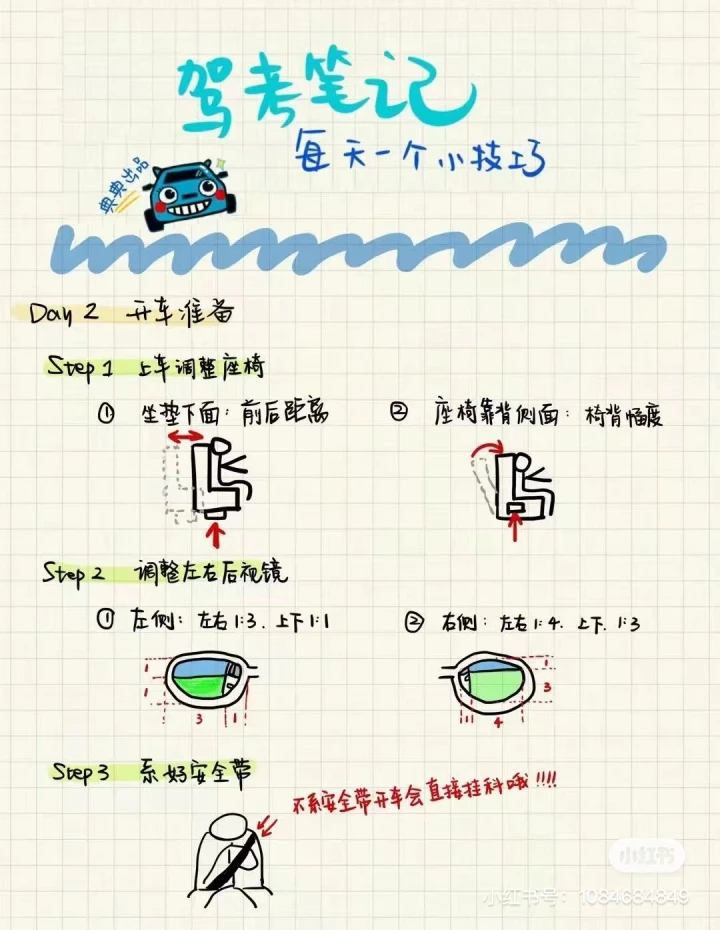 驾考笔记
每天一个小技巧
典典出品
Day 2 开车准备
Step 1 上车调整座椅
① 坐垫下面：前后距离
② 座椅靠背侧面：椅背幅度
Step 2 调整左右后视镜
① 左侧：左右1:3. 上下1:1
② 右侧：左右1:4. 上下.1:3
1
1
3
1
1
3
1
4
Step 3 系好安全带
不系安全带开车会直接挂科哦!!!!
小红书
小红书号：1084684849